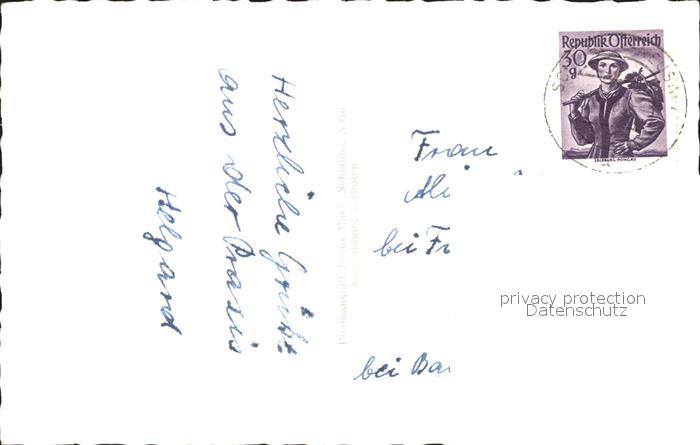 Herzliche Grüße
aus der Praxis
Helgard
Photoanstalt Franz Mark
Nachbildung verboten
Frau
bei Fr
bei Bar
Republik Österreich
30
g
SALZBURG PONGAU
privacy protection
Datenschutz